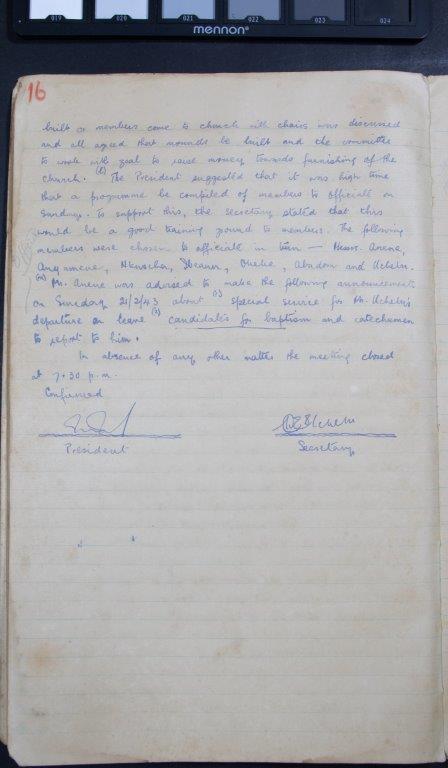 019 020 021 022 023 024
mennon
16
built or members come to church with chairs was discussed
and all agreed that mounds be built and the committee
to work with zeal to raise money towards furnishing of the
Church. The President suggested that it was high time
that a programme be compiled of members to officiate on
Sundays. To support this, the Secretary stated that this
would be a good training ground to members. The following
members were chosen to officiate in turn — Messrs. Anene,
Abadom and Uchelu.
Mr. Anene was advised to make the following announcements
on Sunday 21/2/43 about (1) special service for Mr. Uchelu's
departure on leave (2) candidates for baptism and catechumen
to report to him.
In absence of any other matter the meeting closed
at 7.30 p.m.
Confirmed
President Secretary